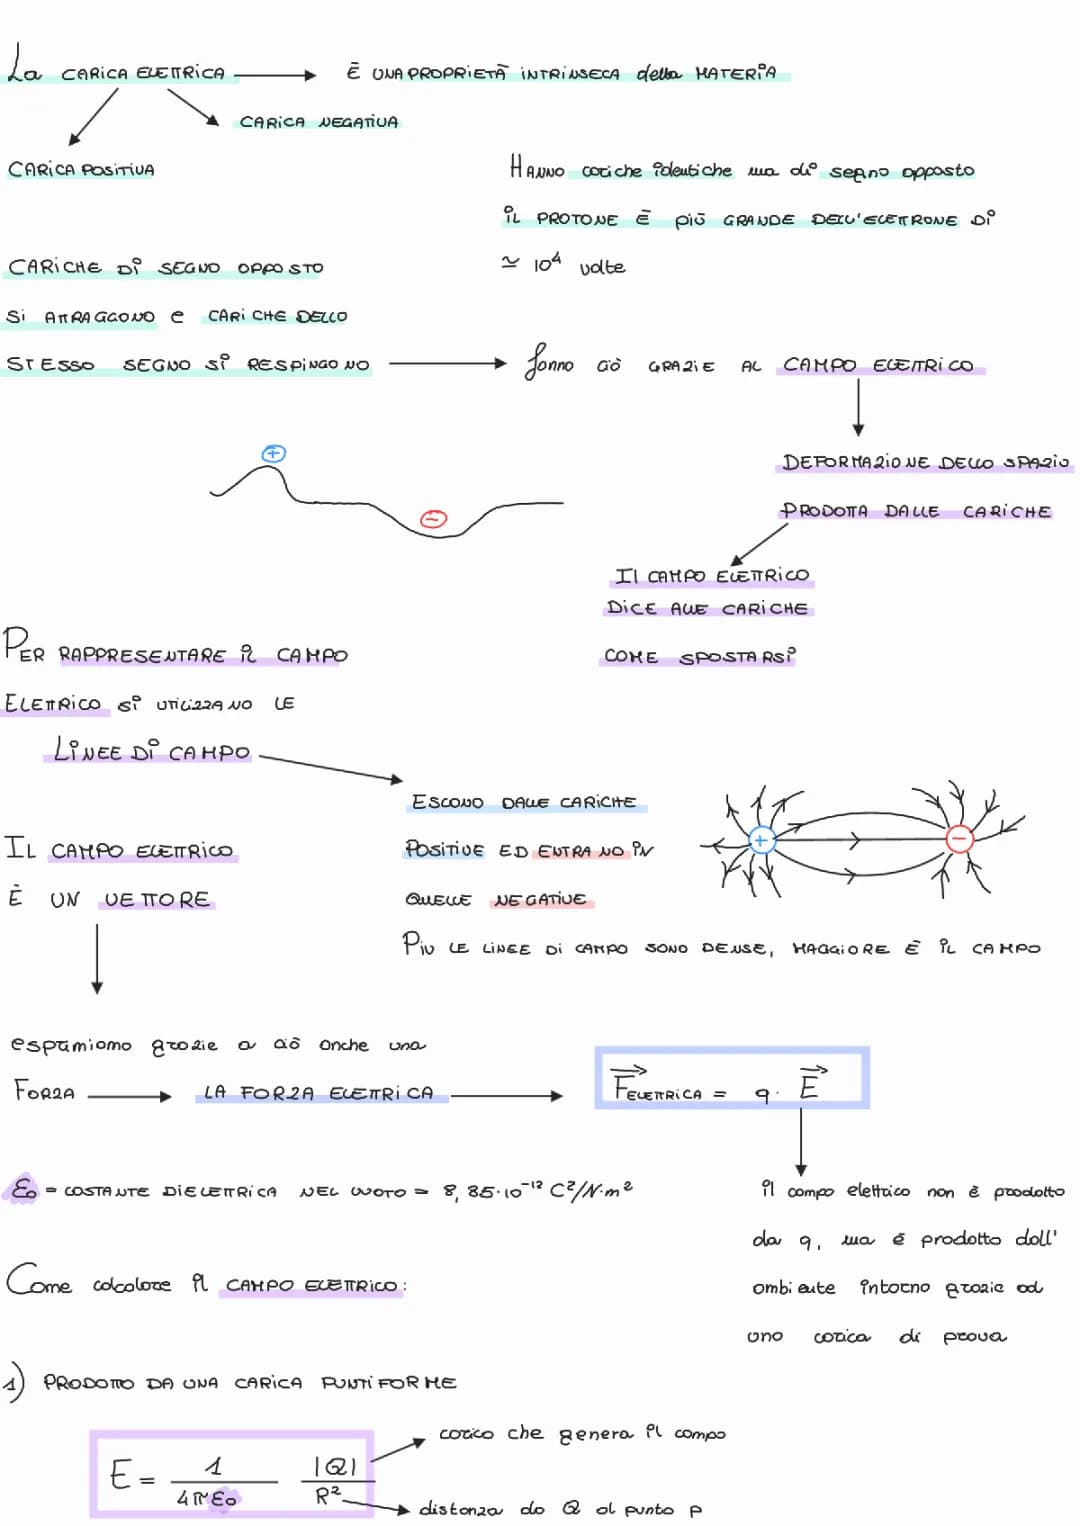 La CARICA ELETTRICA → È UNA PROPRIETÀ INTRINSECA della MATERIA
CARICA NEGATIVA
CARICA POSITIVA
HANNO cariche identiche ma di segno opposto
IL PROTONE È più GRANDE DELL'ELETTRONE DI
≃ 10⁴ volte
CARICHE DI SEGNO OPPOSTO
SI ATTRAGGONO e CARICHE DELLO
STESSO SEGNO SI RESPINGONO → fanno ciò GRAZIE AL CAMPO ELETTRICO
+
DEFORMAZIONE DELLO SPAZIO
PRODOTTA DALLE CARICHE
−
Il CAMPO ELETTRICO
DICE ALLE CARICHE
COME SPOSTARSI
PER RAPPRESENTARE IL CAMPO
ELETTRICO SI UTILIZZANO LE
LINEE DI CAMPO
ESCONO DALLE CARICHE
POSITIVE ED ENTRANO IN
QUELLE NEGATIVE
+ −
IL CAMPO ELETTRICO
È UN VETTORE
PIU LE LINEE DI CAMPO SONO DENSE, MAGGIORE È IL CAMPO
esprimiamo grazie a ciò anche una
FORZA → LA FORZA ELETTRICA → F⃗ELETTRICA = q · E⃗
ε₀ = COSTANTE DIELETTRICA NEL VUOTO = 8,85·10⁻¹² C²/N·m²
il campo elettrico non è prodotto
da q, ma è prodotto dall'
ambiente intorno grazie ad
una carica di prova
Come calcolare il CAMPO ELETTRICO:
1) PRODOTTO DA UNA CARICA PUNTIFORME
E = 1/4πε₀ |Q|/R²
carica che genera il campo
distanza da Q al punto p